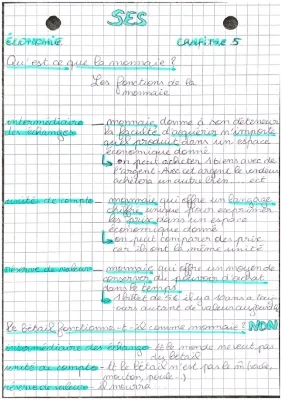 SES
ÉCONOMIE CHAPITRE 5
Qu'est ce que la monnaie ?
Les fonctions de la
monnaie
intermédiaire — monnaie donne à son détenteur
des échanges la faculté d'acquérir n'importe
quel produit dans un espace
économique donné
↳ on peut acheter 1 bien avec de
l'argent. Avec cet argent le vendeur
achètera un autre bien ... ect
unité de compte — monnaie qui offre un langage
chiffré unique pour exprimer
les prix dans un espace
économique donné
↳ on peut comparer des prix
car ils ont la même unité
réserve de valeur — monnaie qui offre un moyen de
conserver du pouvoir d'achat
dans le temps
↳ 1 billet de 5€ il y a 10 ans a tou-
jours autant de valeur aujourd'hui
Le bétail fonctionne-t-il comme monnaie ? NON
intermédiaire des échange - tt le monde ne veut pas
du bétail
unité de compte - tt le bétail n'est pas le m̂ (vache,
mouton, poule...)
réserve de valeur - il mourra